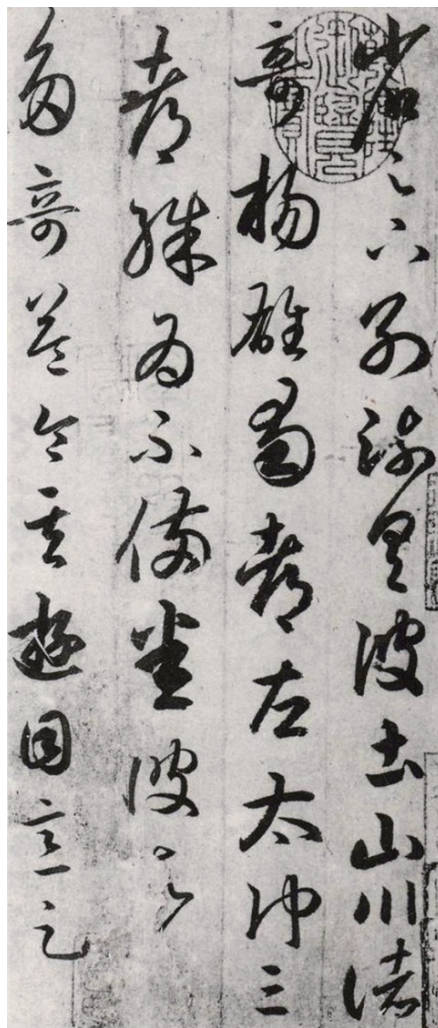 省足下别疏具彼土山川諸
奇揚雄蜀都左太沖三
都殊為不備悉彼故為
多奇益令其遊目意足